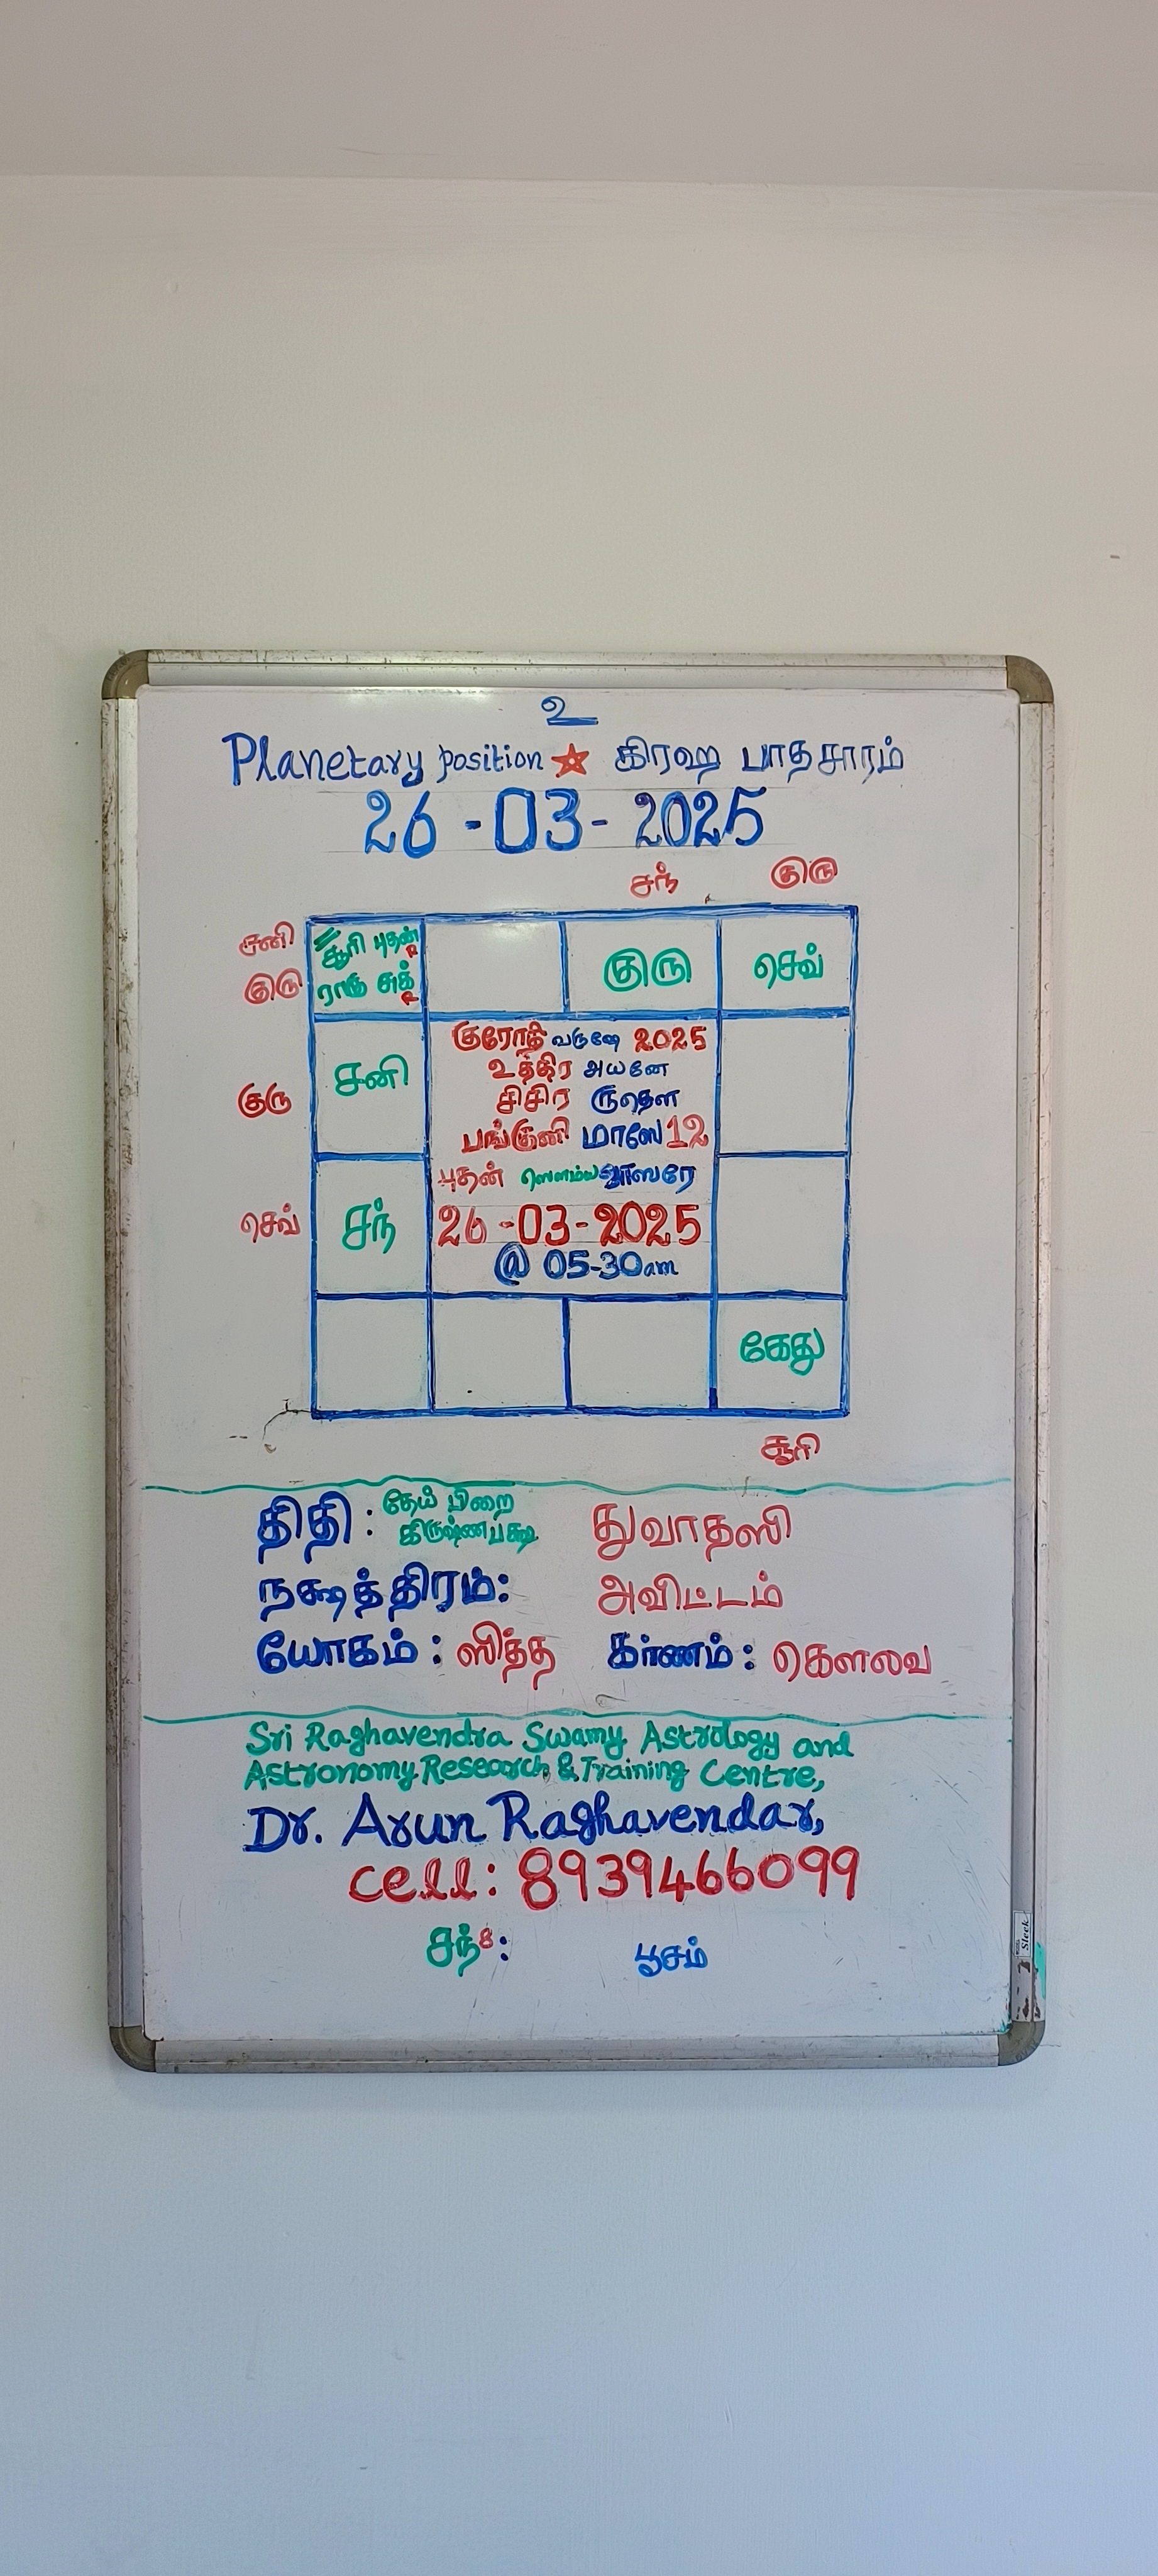 உ
Planetary position ★ கிரஹ பாதசாரம்
26-03-2025
சந் குரு
சனி சூரி புதன் R
குரு ராகு சுக் R
குரு செவ்
குரோதி வருஷே 2025
உத்திர அயனே
குரு சனி சிசிர ருதௌ
பங்குனி மாஸே 12
புதன் ஸௌம்ய வாஸரே
செவ் சந் 26-03-2025
@ 05-30am
கேது
சூரி
திதி : தேய் பிறை கிருஷ்ணபக்ஷ துவாதஸி
நக்ஷத்திரம்: அவிட்டம்
யோகம் : ஸித்த கர்ணம் : கௌலவ
Sri Raghavendra Swamy Astrology and
Astronomy Research & Training Centre,
Dr. Arun Raghavendar,
cell: 8939466099
சந்8: பூசம்
Sleek